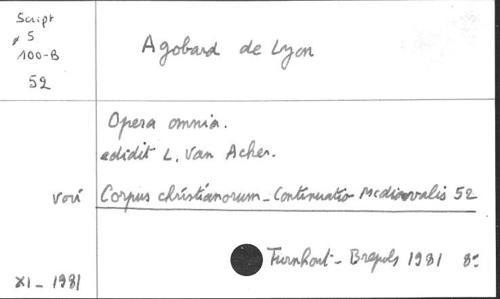 Script
5
100-B
52
Agobard de Lyon
Opera omnia.
edidit L. Van Acker.
voir Corpus christianorum - Continuatio Mediaevalis 52
Turnhout - Brepols 1981 8°
XI - 1981